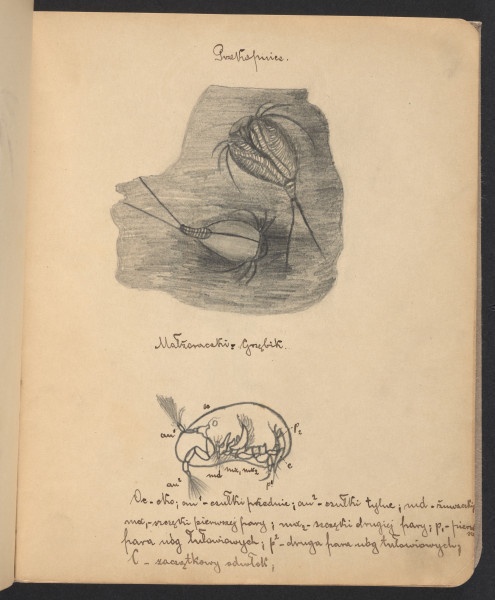 Przekopnice.
Małżoraczki. Grzbik.
oc
an¹
an²
md
mx₁
mx₂
p₂
c
p¹
Oc - oko; an¹ - czułki przednie; an² - czułki tylne; md - żuwaczki
mx₁ - szczęki pierwszej pary; mx₂ - szczęki drugiej pary; p₁ - pierw
para nóg tułowiowych; p² - druga para nóg tułowiowych;
C - szczątkowy odwłok;